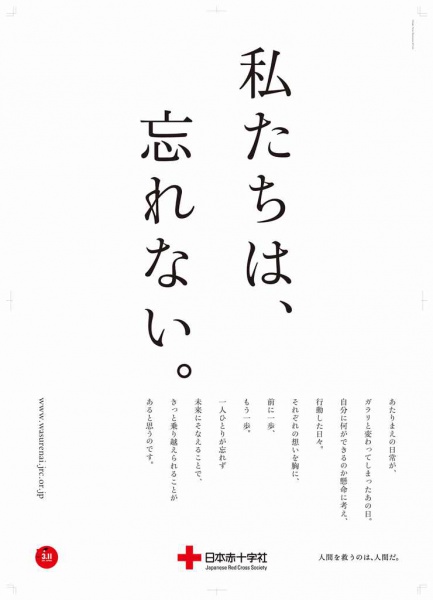 私たちは、
忘れない。
あたりまえの日常が、
ガラリと変わってしまったあの日。
自分に何ができるのか懸命に考え、
行動した日々。
それぞれの想いを胸に、
前に一歩、
もう一歩。
一人ひとりが忘れず
未来にそなえることで、
きっと乗り越えられることが
あると思うのです。
www.wasurenai.jrc.or.jp
3.11
日本赤十字社
Japanese Red Cross Society
人間を救うのは、人間だ。